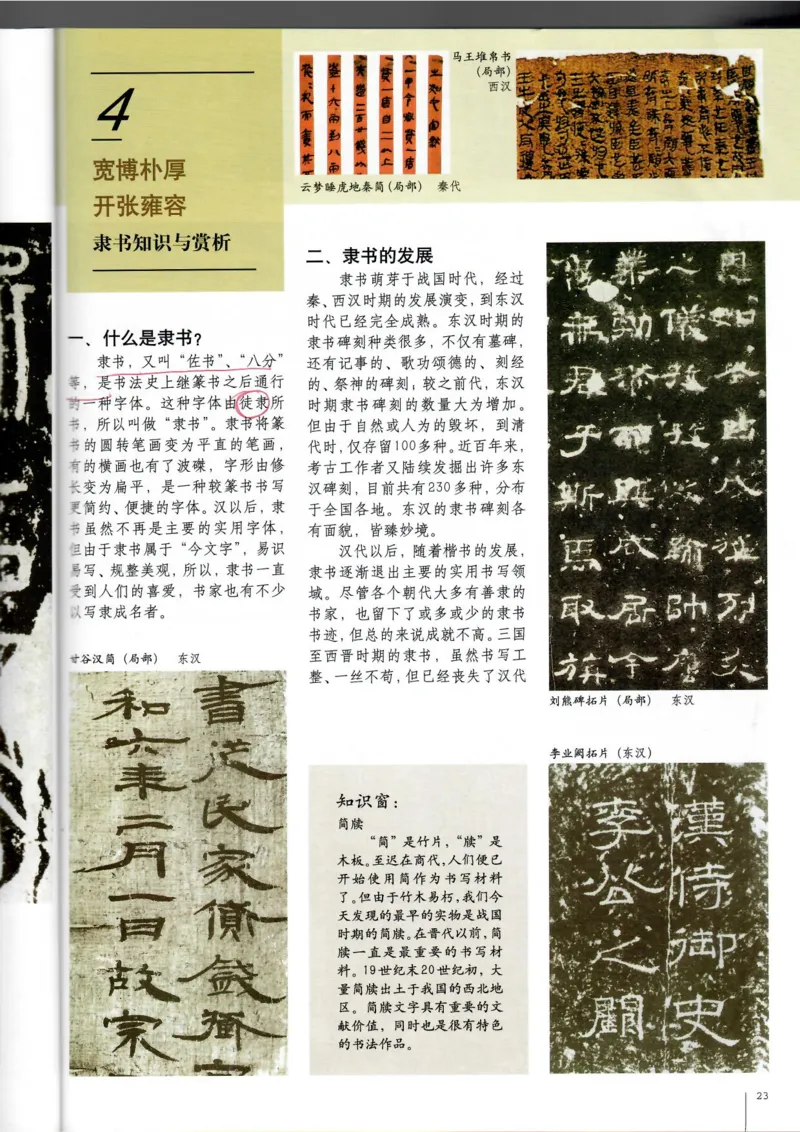 4
宽博朴厚
开张雍容
隶书知识与赏析
云梦睡虎地秦简(局部) 秦代
马王堆帛书
(局部)
西汉
一、什么是隶书?
隶书，又叫“佐书”、“八分”
等，是书法史上继篆书之后通行
的一种字体。这种字体由徒隶所
书，所以叫做“隶书”。隶书将篆
书的圆转笔画变为平直的笔画，
有的横画也有了波磔，字形由修
长变为扁平，是一种较篆书书写
更简约、便捷的字体。汉以后，隶
书虽然不再是主要的实用字体，
但由于隶书属于“今文字”，易识
易写、规整美观，所以，隶书一直
受到人们的喜爱，书家也有不少
以写隶成名者。
甘谷汉简(局部) 东汉
書从民家償錢
和六年二月一日故宗
二、隶书的发展
隶书萌芽于战国时代，经过
秦、西汉时期的发展演变，到东汉
时代已经完全成熟。东汉时期的
隶书碑刻种类很多，不仅有墓碑，
还有记事的、歌功颂德的、刻经
的、祭神的碑刻；较之前代，东汉
时期隶书碑刻的数量大为增加。
但由于自然或人为的毁坏，到清
代时，仅存留100多种。近百年来，
考古工作者又陆续发掘出许多东
汉碑刻，目前共有230多种，分布
于全国各地。东汉的隶书碑刻各
有面貌，皆臻妙境。
汉代以后，随着楷书的发展，
隶书逐渐退出主要的实用书写领
域。尽管各个朝代大多有善隶的
书家，也留下了或多或少的隶书
书迹，但总的来说成就不高。三国
至西晋时期的隶书，虽然书写工
整、一丝不苟，但已经丧失了汉代
知识窗：
简牍
“简”是竹片，“牍”是
木板。至迟在商代，人们便已
开始使用简作为书写材料
了。但由于竹木易朽，我们今
天发现的最早的实物是战国
时期的简牍。在晋代以前，简
牍一直是最重要的书写材
料。19世纪末20世纪初，大
量简牍出土于我国的西北地
区。简牍文字具有重要的文
献价值，同时也是很有特色
的书法作品。
刘熊碑拓片(局部) 东汉
李业阙拓片(东汉)
漢侍御史
李公之闕
23